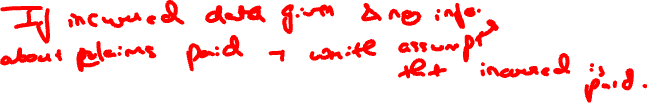 If incurred data given & no info.
about claims paid → write assumpⁿ
that incurred is paid.